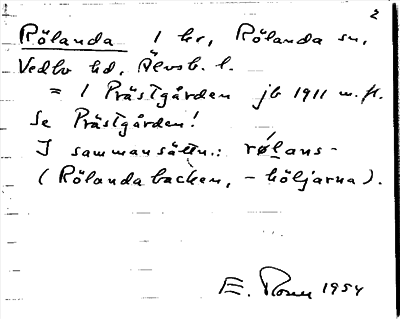 2
Rölanda 1 hr, Rölanda sn,
Vedbo hd, Älvsb. l.
= 1 Prästgården jb 1911 m.fl.
Se Prästgården!
I sammansättn.: rǿlans-
(Rölandabacken, -höljarna).
E. 1954